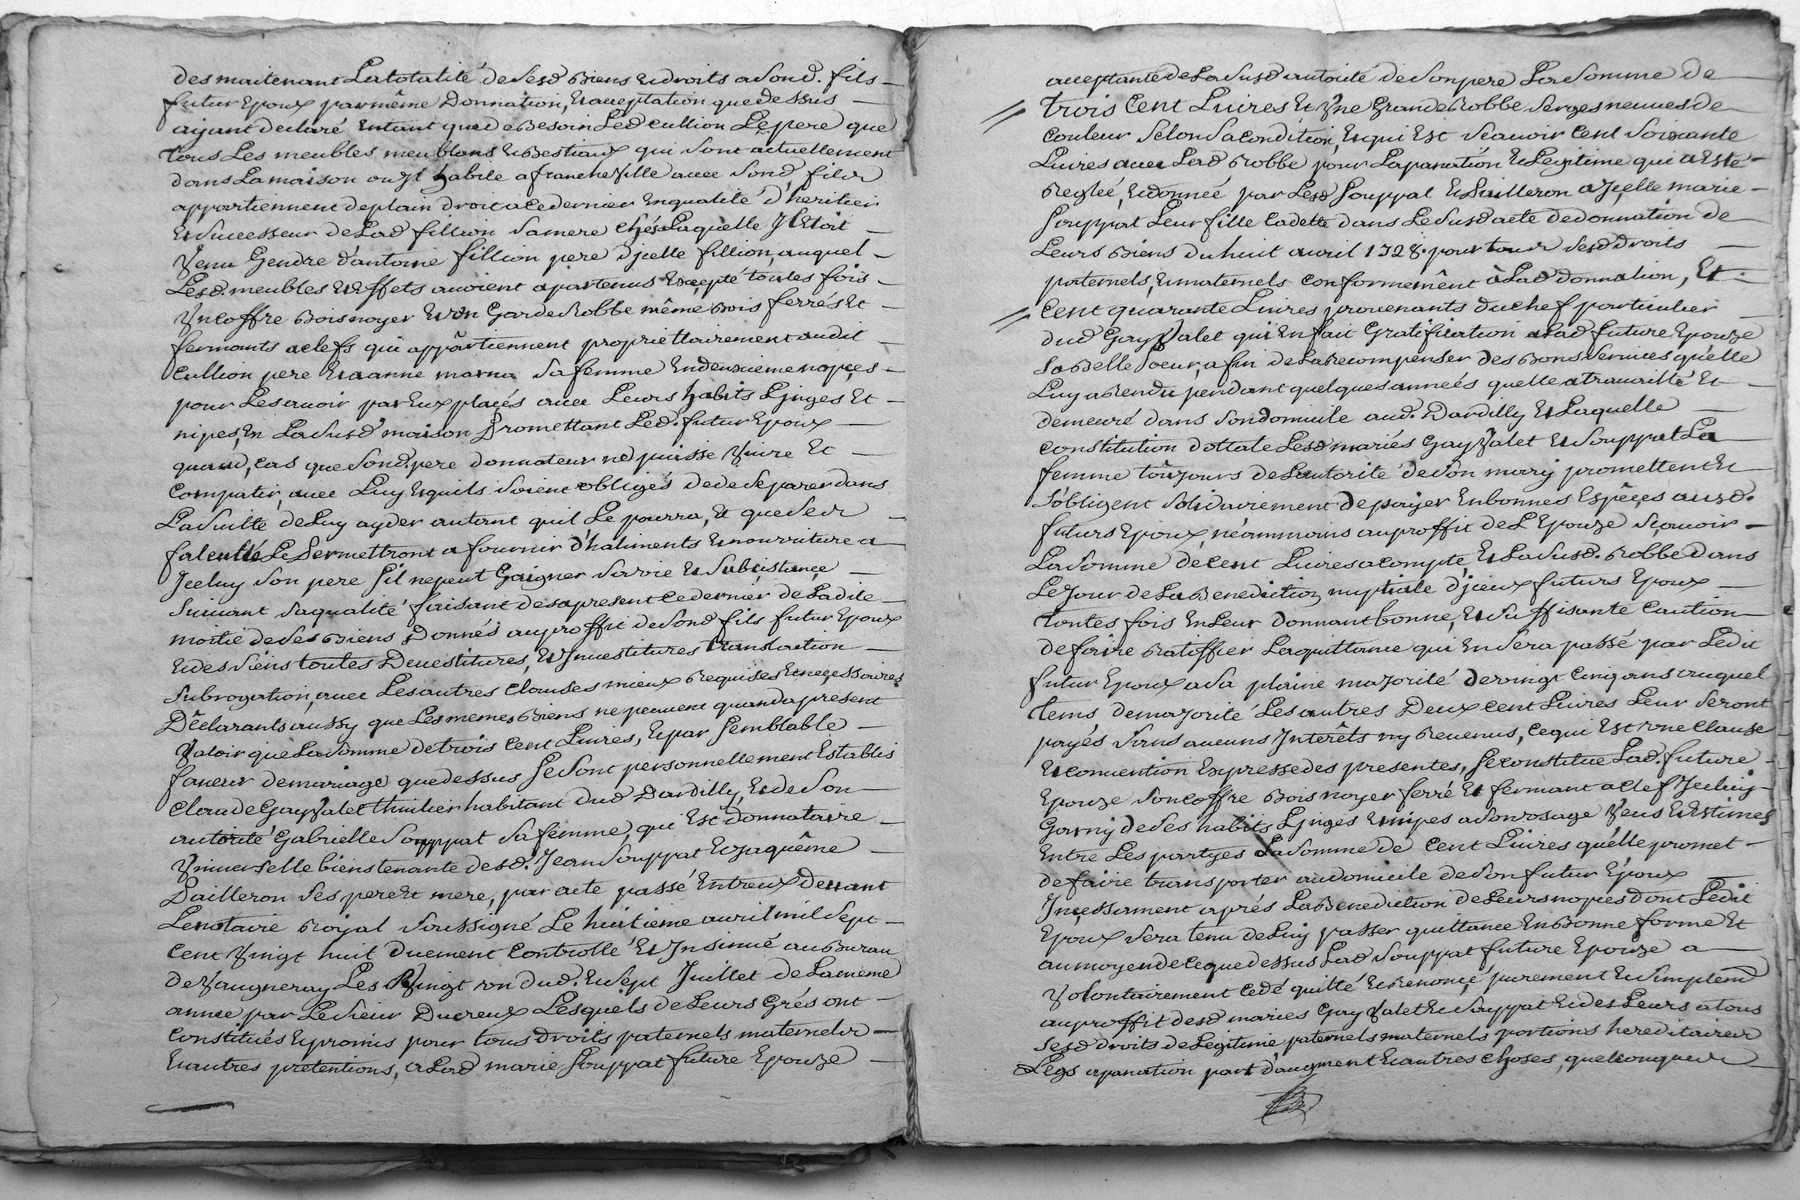 des maitenant La totalité de Sesd Biens Et droits a Sond. fils
futur Epoux par même Donnation, Et acceptation que dessus
aÿant declaré Entant que de Besoin Led cullion Le pere que
tous Les meubles meublans Et Bestiaux qui sont actuellement
dans La maison ou Jl habite a francheville avec Sond fils
appartiennent de plain droit a ce dernier En qualité d'heritier
Et Successeur de Lad fillion Sa mere chés Laquelle Jl Etoit
Venu Gendre d'antoine fillion pere d'jcelle fillion, auquel
Lesd. meubles Et Effets avoient apartenus Excepté toutes fois
Vn coffre Bois noyer Et vn Garde Robbe même Bois ferrés Et
fermants a clefs qui appârtiennent propriettairement audit
Cullion pere Et a anne marna Sa femme En deuxieme nopçes
pour Les avoir par Eux plaçés avec Leurs habits Linges Et
nipes, En La Susd maison Promettant Led. futur Epoux
quaud, cas que Sond. pere donnateur ne puisse Vivre Et
Compatir, avec Luy Et quils soient obligés de de Separer dans
La Suitte de Luy ayder autant quil Le pourra, Et que Ses
faculté Le Permettront a fournir d'haliments Et nourriture a
Jceluy Son pere Sil ne peut Gaigner Sa vie Et Subsistançe
Suivant Sa qualité faisant des apresent Ce dernier de Ladite
moitié de Ses Biens Donnés au proffit de Sond fils futur Epoux
Et des Siens toutes Devestitures, Et Jnvestitures translation
Subrogation, avec Les autres Clauses mieux Requises Et neçessaires
Déclarants aussy que Les memes Biens ne peuvent quand apresent
Valoir que La Somme de trois cent Livres, Et par Semblable
faveur de mariage que dessus Se Sont personnellement Establis
Claude Gay Valet thuilier habitant dud Dardilly, Et de Son
autorité Gabrielle Souppat Sa femme, qui Est Donnataire
Vniverselle biens tenante desd. Jean Souppat Et Jaquême
Pailleron Ses pere Et mere, par acte passé Entreux Devant
Le notaire Royal Soussigné Le huitieme avril mil Sept
Cent Vingt huit Duement Controllé Et Jnsinué au Bureau
de Vaugneray Les Vingt vn dud. Et Sept Juillet de La meme
année par Le Sieur Ducreux Lesquels de Leurs Grés ont
Constitués Et promis pour tous droits paternels maternels
Et autres pretentions, a Lad marie Souppat future Epouze
acceptante de La Susd autorité de Son pere La Somme de
trois Cent Livres Et Vne Grande Robbe Serges neuves de
Couleur Selon Sa condition, Et qui Est Scavoir Cent Soixante
Livres avec Lad Robbe pour La panation Et Legitime qui a Esté
Reglée, Et donnée par Lesd Souppat Et Pailleron a Jçelle marie
Souppat Leur fille Cadette dans Le Susd acte de donnation de
Leurs Biens du huit avril 1728. pour tous Sesd droits
paternels, Et maternels conformement à Lad Donnation, Et
Cent quarante Livres provenants du chef particulier
dud Gay Valet qui En fait Gratification a Lad future Epouze
Sa Belle Soeur, afin de La Recompenser des Bons Services qu'elle
Luy a Rendu pendant quelques années quelle a travaillé Et
demeuré dans Son domicile aud. Dardilly Et Laquelle
Constitution dottale Lesd mariés Gay Valet Et Souppat La
femme toujours de Lautorité de Son mary promettent Et
S'obligent Solidairement de payer En bonnes Espêçes ausd.
futurs Epoux, néammoins au proffit de L Epouze Sçavoir
La Somme de Cent Livres a Compte, Et La Susd. Robbe dans
Le Jour de La Benediction nuptiale d'jceux futurs Epoux
toutes fois En Leur Donnant bonne, Et Suffisante Caution
de faire Ratiffier La quittance qui En Sera passé par Ledit
futur Epoux a Sa plaine majorité de vingt Cinq ans auquel
tems de majorité Les autres Deux Cent Livres Leur Seront
payés Sans aucuns Jnterêts ny Revenus, Ce qui Est vne Clause
Et Convention Expresse des presentes, Se constitue Lad. future
Epouze Son Coffre Bois noyer ferré Et fermant a Clef Jceluy
Garny de Ses habits Linges Et nipes a Son vsage Veus Et Estimés
Entre Les partyes La Somme de Cent Livres qu'elle promet
de faire transporter au domicile de Son futur Epoux
Jnçessament aprés La Benediction de Leurs nopces dont Ledit
Epoux Sera tenu de Luy passer quittance En Bonne forme Et
au moyen de Ce que dessus Lad Souppat future Epouze a
Volontairement Cedé quitté Et Renonçé purement Et Simplem
au proffit desd mariés Gay Valet Et Souppat Et des Leurs a tous
Sesd droits de Legitime paternels maternels portions hereditaires
Legs apanation part d'augment Et autres choses, quelconques